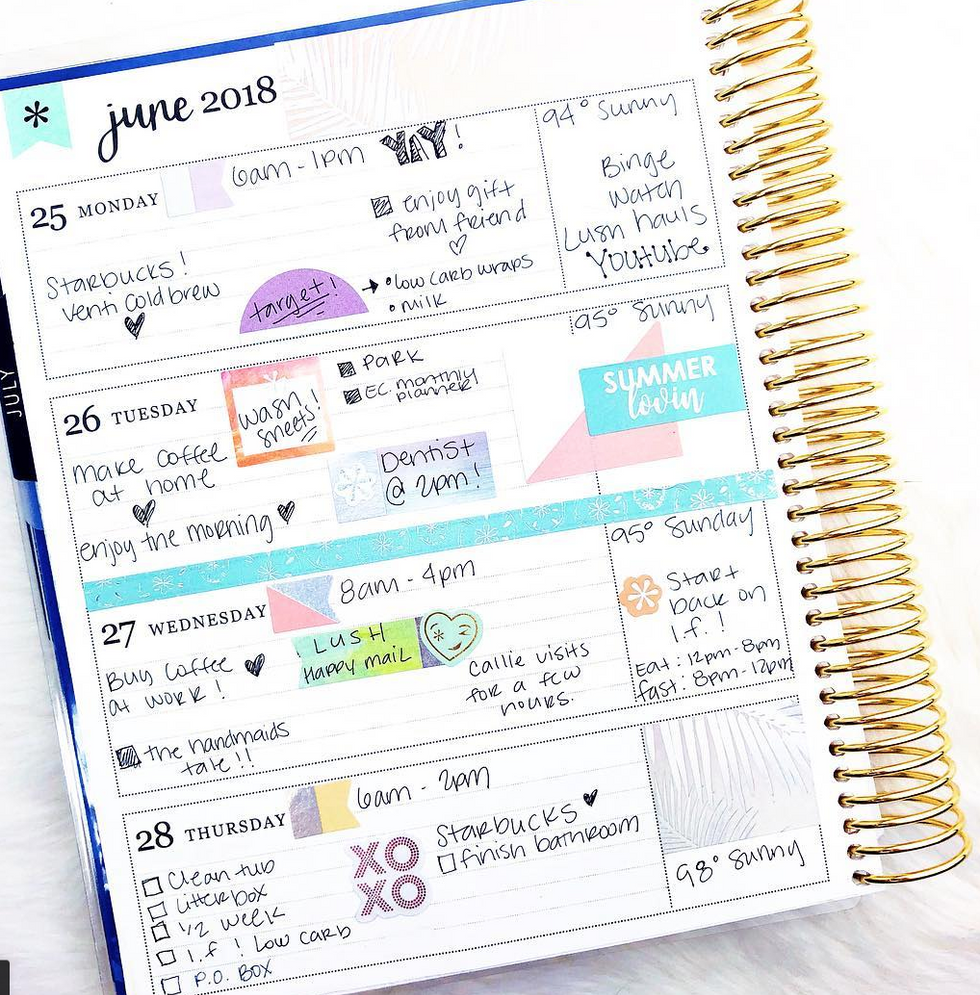 JULY
* june 2018
25 MONDAY
6am - 1pm YAY!
enjoy gift
from friend
Starbucks!
Venti coldbrew
target!
• low carb wraps
• milk
94° Sunny
Binge
Watch
Lush hauls
Youtube
26 TUESDAY
Wash
sheets!
PARK
EC. monthly
planner
make coffee
at home
enjoy the morning
Dentist
@ 2pm!
95° Sunny
SUMMER
lovin
27 WEDNESDAY
8am - 4pm
Buy Coffee
at work!
LUSH
Happy mail
Callie visits
for a few
hours.
the handmaids
tale!!
95° Sunday
Start
back on
I.f.!
Eat: 12pm - 8pm
fast: 8pm - 12pm
28 THURSDAY
6am - 2pm
Clean tub
Litterbox
1/2 week
I.f! Low carb
P.O. BOX
XO
XO
Starbucks
finish bathroom
98° Sunny